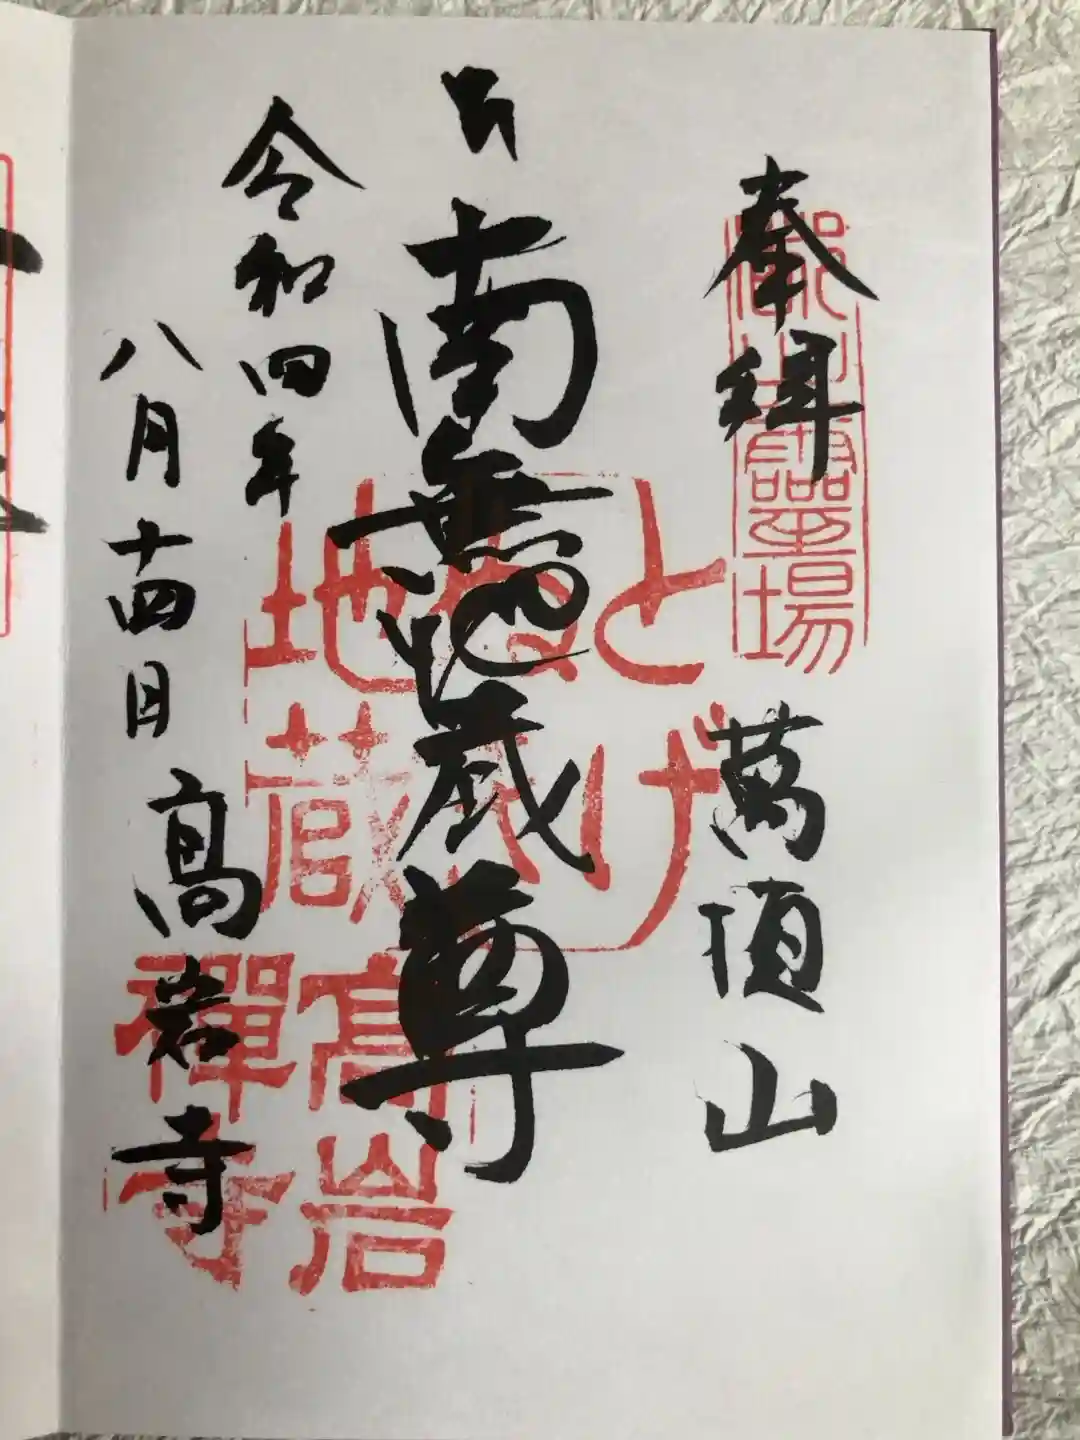 奉拝
萬頂山
南無地蔵尊
令和四年
八月十四日
高岩寺
霊場
とげぬき
地蔵
高岩
禅寺